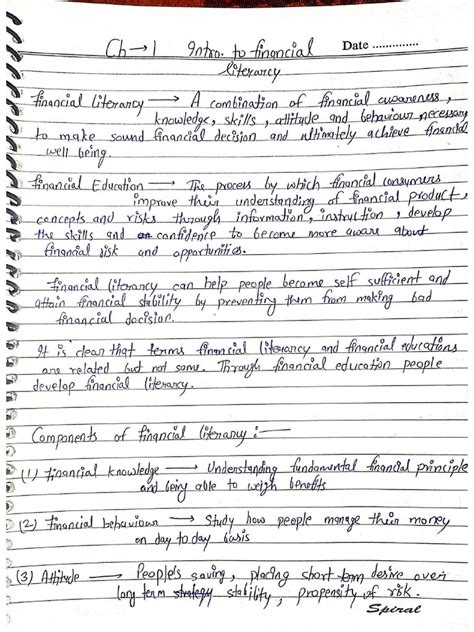 Ch → 1 Intro. to financial Date ..............
literarcy
financial Literarcy → A combination of financial awareness,
knowledge, skills, attitude and behaviour necessary
to make sound financial decision and ultimately achieve financial
well being.
financial Education → The process by which financial consumers
improve their understanding of financial product,
concepts and risks through information, instruction, develop
the skills and confidence to become more aware about
financial risk and opportunities.
financial literarcy can help people become self sufficient and
attain financial stability by preventing them from making bad
financial decision.
It is clear that terms financial literarcy and financial educations
are related but not same. Through financial education people
develop financial literarcy.
Components of financial literarcy :—
(1) financial knowledge → Understanding fundamental financial principle
and being able to weigh benefits
(2) financial behaviour → Study how people manage their money
on day to day basis
(3) Attitude → People's saving, placing short term desire over
long term stability, propensity of risk.
Spiral